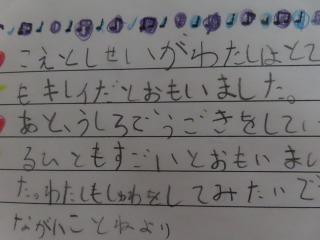 こえとしせいがわたしはとて
もキレイだとおもいました。
あと、うしろでうごきをしてい
るひともすごいとおもいまし
た。わたしもしゅわをしてみたいで
ながいことねより